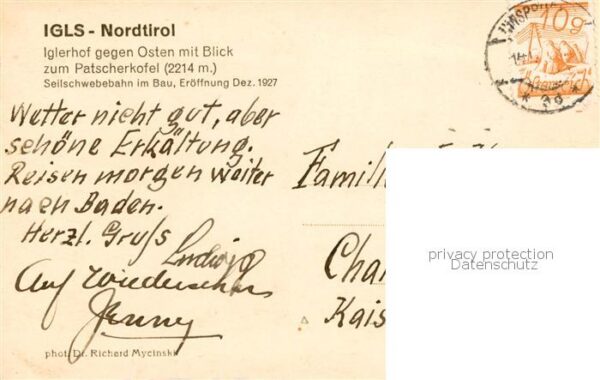 IGLS - Nordtirol
Iglerhof gegen Osten mit Blick
zum Patscherkofel (2214 m.)
Seilschwebebahn im Bau, Eröffnung Dez. 1927
10g
Wetter nicht gut, aber
schöne Erkältung.
Reisen morgen weiter
nach Baden.
Herzl. Gruß
Ludwig
Auf Wiedersehen
Jenny
Famili
Cha
Kais
privacy protection
Datenschutz
phot. Dr. Richard Mycinski